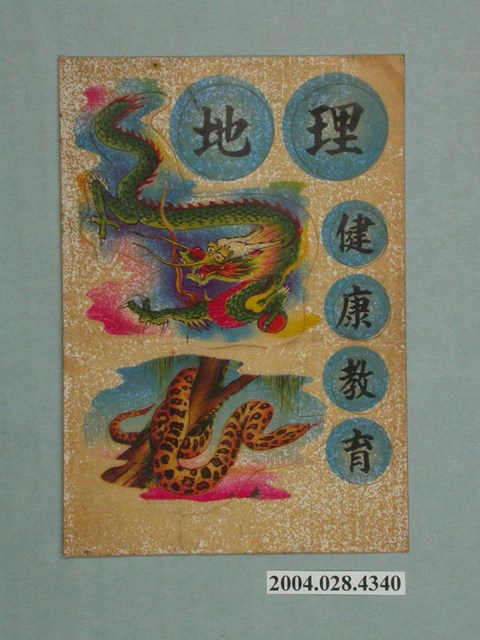 地理
健康教育
2004.028.4340